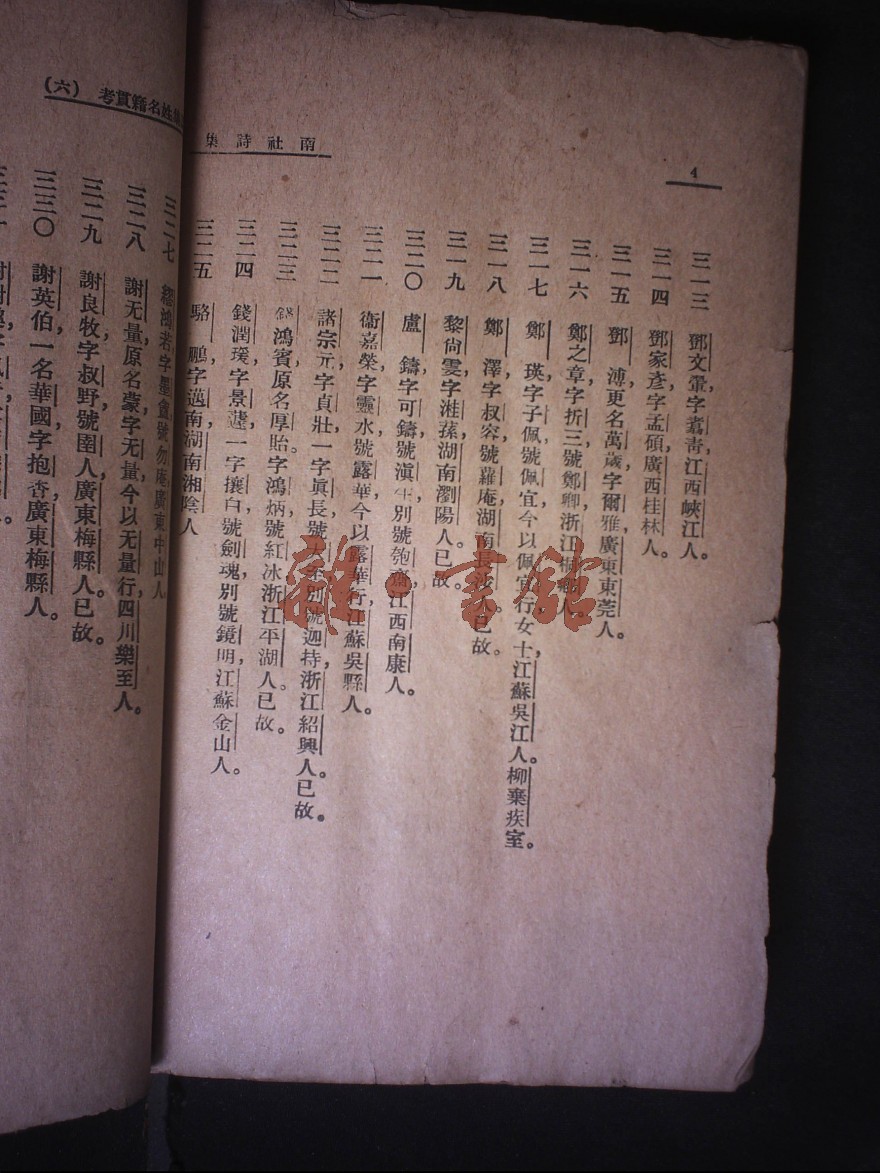 4
南社詩集
三一三 鄧文翬字藎靑，江西峽江人。
三一四 鄧家彥字孟碩，廣西桂林人。
三一五 鄧 溥更名萬歲，字爾雅，廣東東莞人。
三一六 鄭之章字折三，號鄭卿，浙江桐鄉人。
三一七 鄭 瑛字子佩，號佩宜，今以佩宜行，女士，江蘇吳江人。柳棄疾室。
三一八 鄭 澤字叔容，號蘿庵，湖南長沙人。已故。
三一九 黎尙雯字桂蓀，湖南瀏陽人。已故。
三二〇 盧 鑄字可鑄，號滇生，別號匏齋，江西南康人。
三二一 衞嘉榮字靈水，號露華，今以露華行，江蘇吳縣人。
三二二 諸宗元字貞壯，一字眞長，號大至，別號迦持，浙江紹興人。已故。
三二三 鴻賓原名厚貽，字鴻炳，號紅冰，浙江平湖人。已故。
三二四 錢潤瑗字景蘧，一字攘白，號劍魂，別號鏡明，江蘇金山人。
三二五 駱 鵬字邁南，湖南湘陰人
姓名籍貫考 （六）
三二七 繆鴻若字墨盦，號勿庵，廣東中山人
三二八 謝无量原名蒙，字无量，今以无量行，四川樂至人。
三二九 謝良牧字叔野，號圉人，廣東梅縣人。已故。
三三〇 謝英伯一名華國，字抱香，廣東梅縣人。
雜·書館